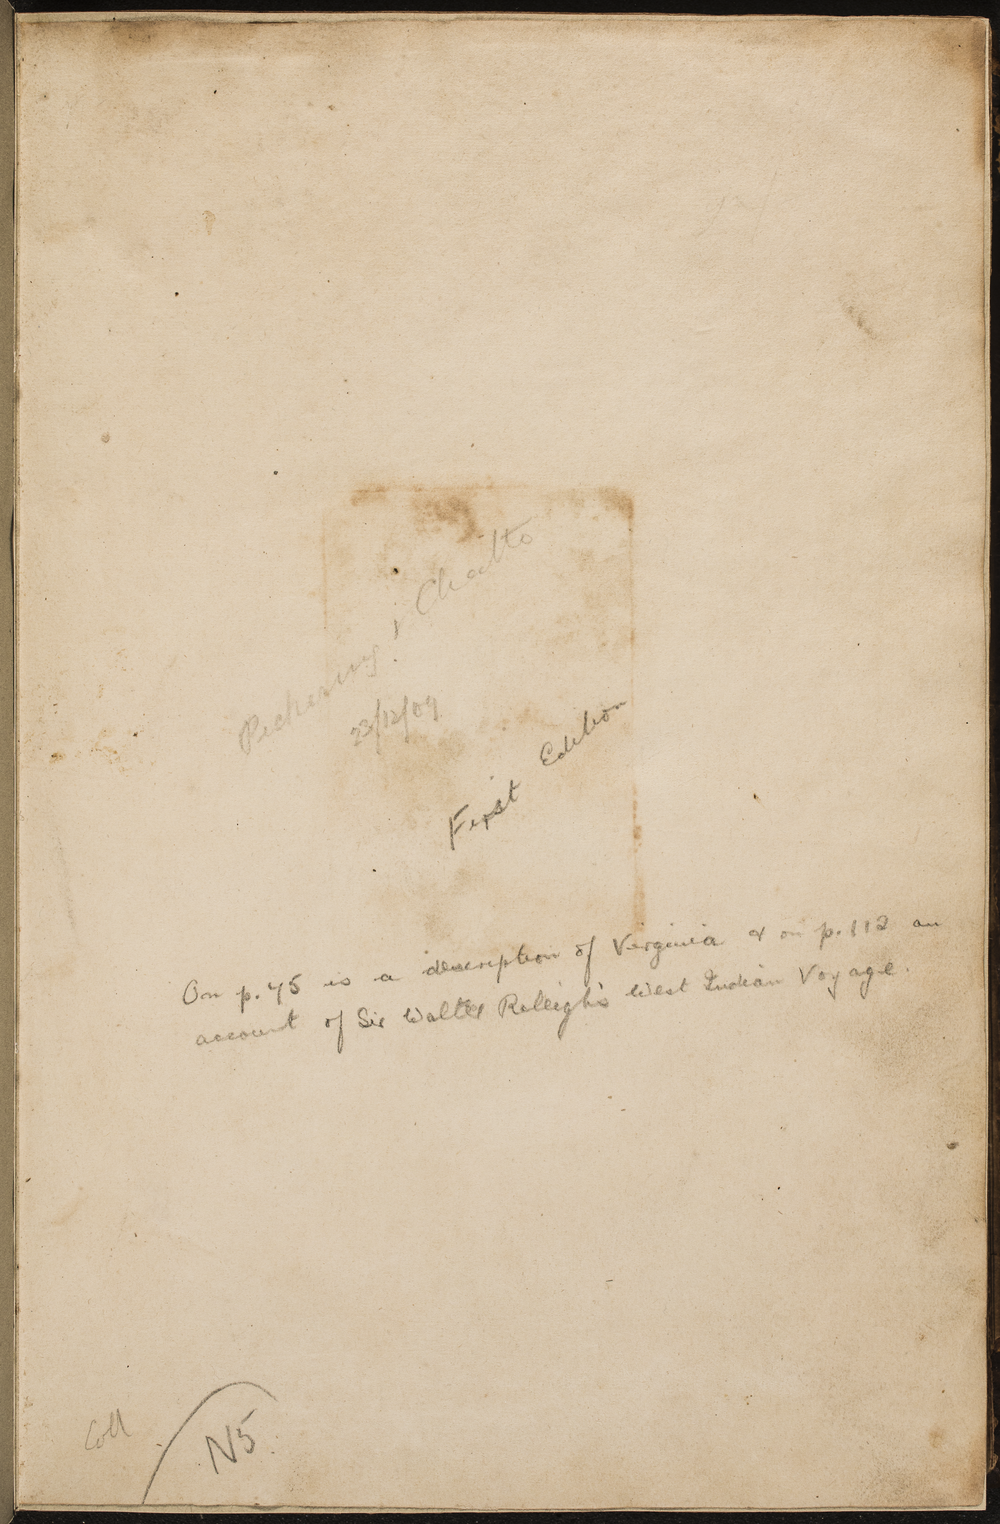 Pickering & Chatto
23/12/09
First Edition
On p. 75 is a description of Virginia & on p. 112 an
account of Sir Walter Raleigh's West Indian Voyage.
Coll
N5.